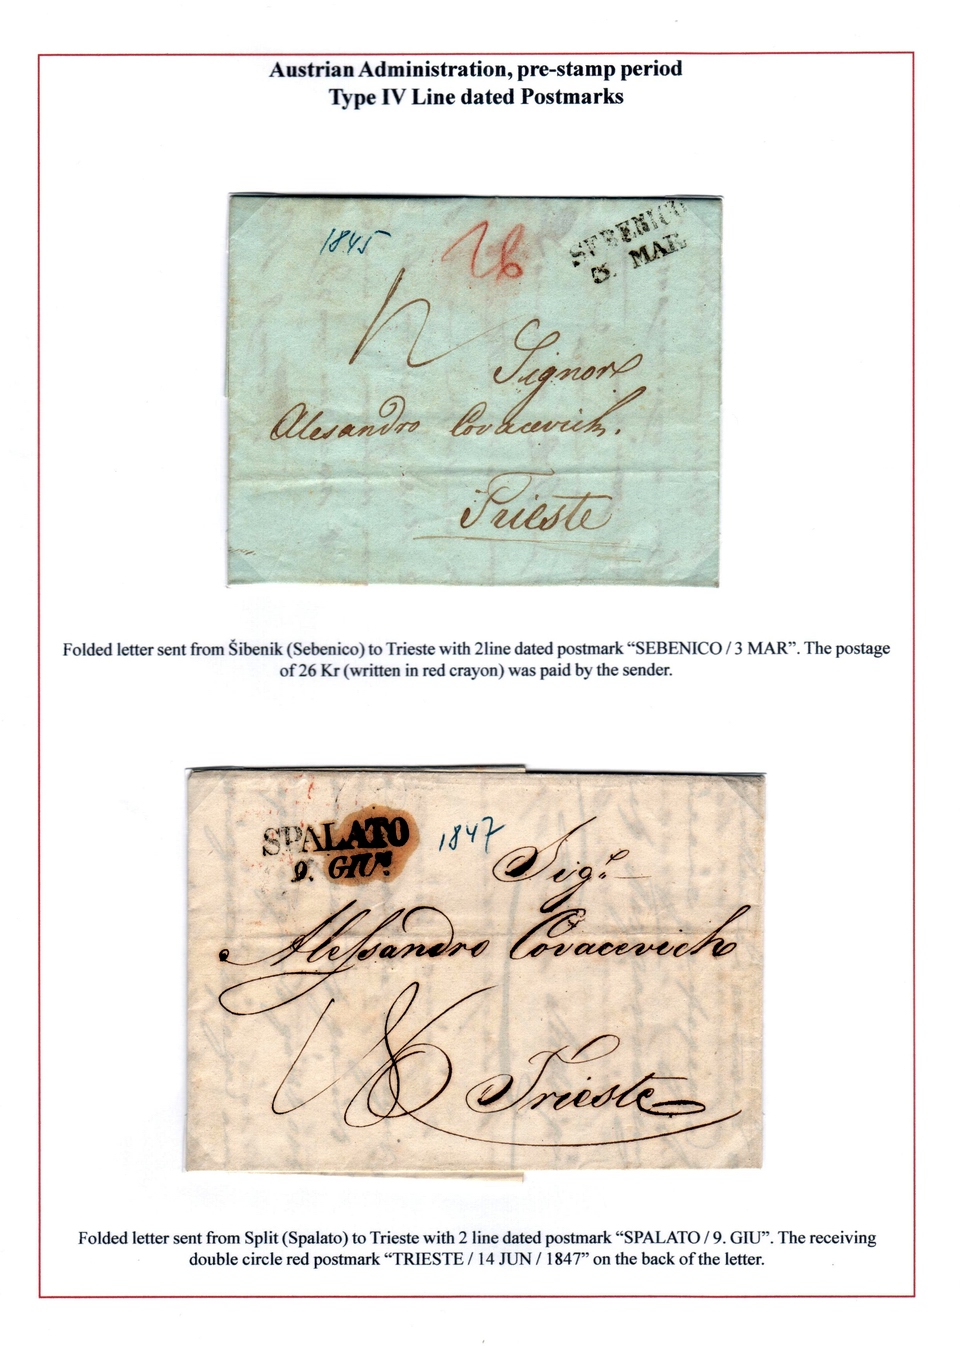 Austrian Administration, pre-stamp period
Type IV Line dated Postmarks
1845
26
SEBENICO
3. MAR.
Signore
Alesandro Covacevich.
Trieste
Folded letter sent from Šibenik (Sebenico) to Trieste with 2line dated postmark “SEBENICO / 3 MAR”. The postage
of 26 Kr (written in red crayon) was paid by the sender.
SPALATO
9. GIU.
1847
Sigr
Alessandro Covacevich
Trieste
Folded letter sent from Split (Spalato) to Trieste with 2 line dated postmark “SPALATO / 9. GIU”. The receiving
double circle red postmark “TRIESTE / 14 JUN / 1847” on the back of the letter.